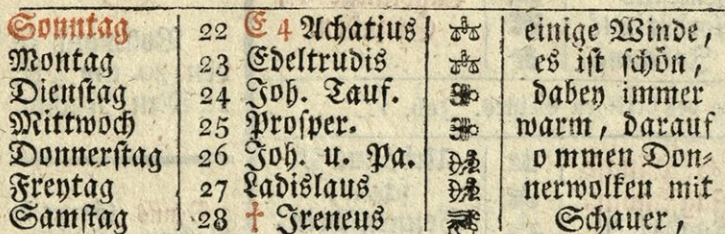 Sonntag 22 E 4 Achatius einige Winde,
Montag 23 Edeltrudis es ist schön,
Dienstag 24 Joh. Tauf. dabey immer
Mittwoch 25 Prosper. warm, darauf
Donnerstag 26 Joh. u. Pa. o mmen Don-
Freytag 27 Ladislaus nerwolken mit
Samstag 28 † Ireneus Schauer,